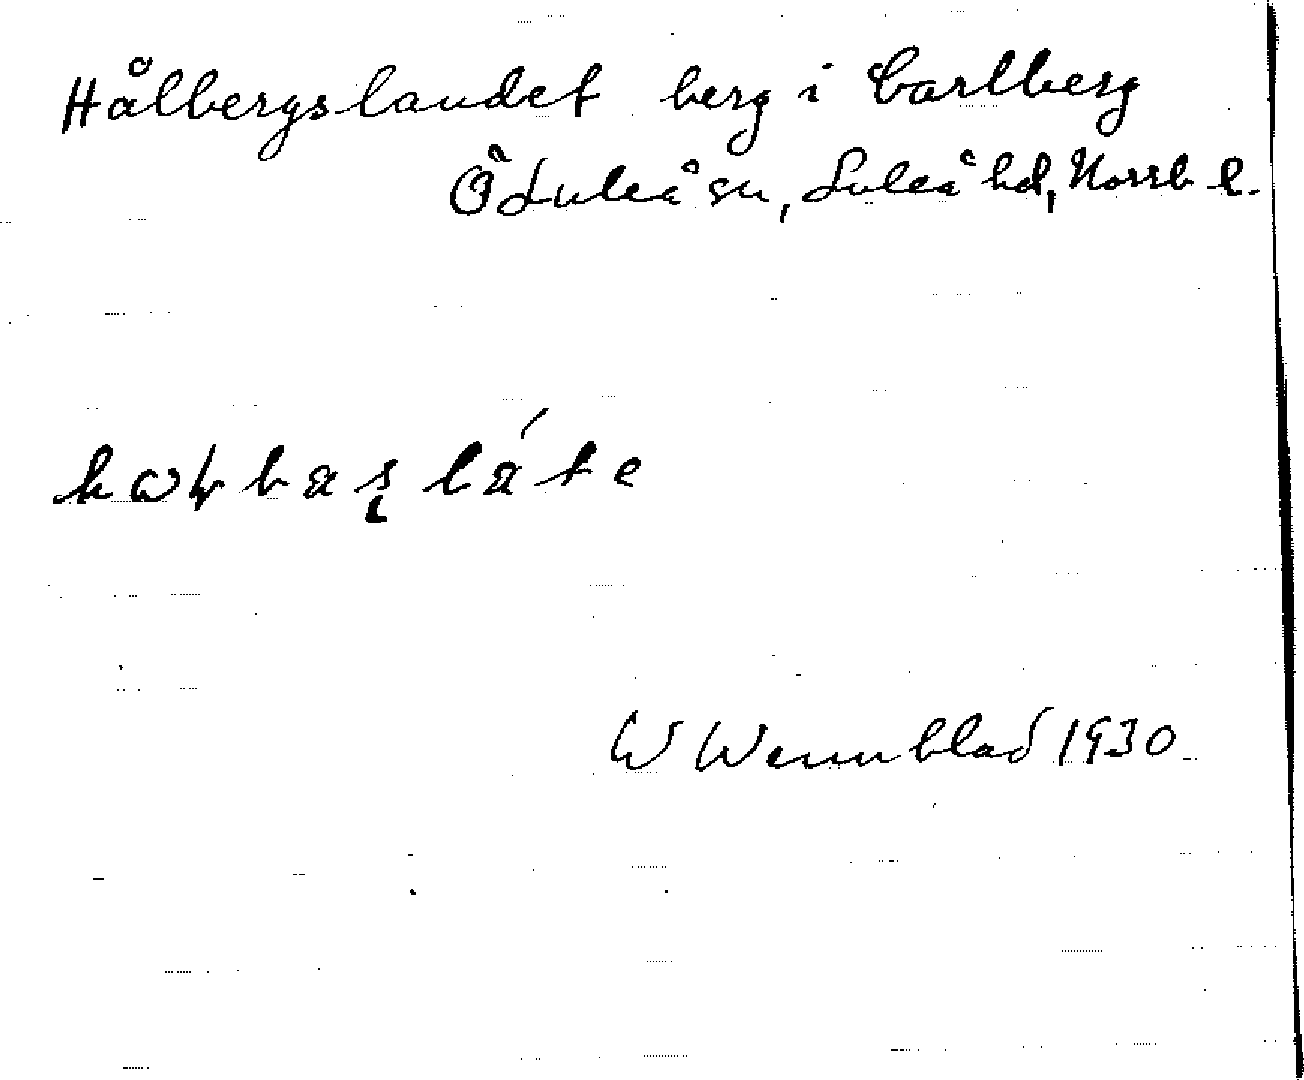 Hålbergslandet berg i Carlberg
Ö Luleå sn, Luleå hd, Norrb l.
W Wennblad 1930